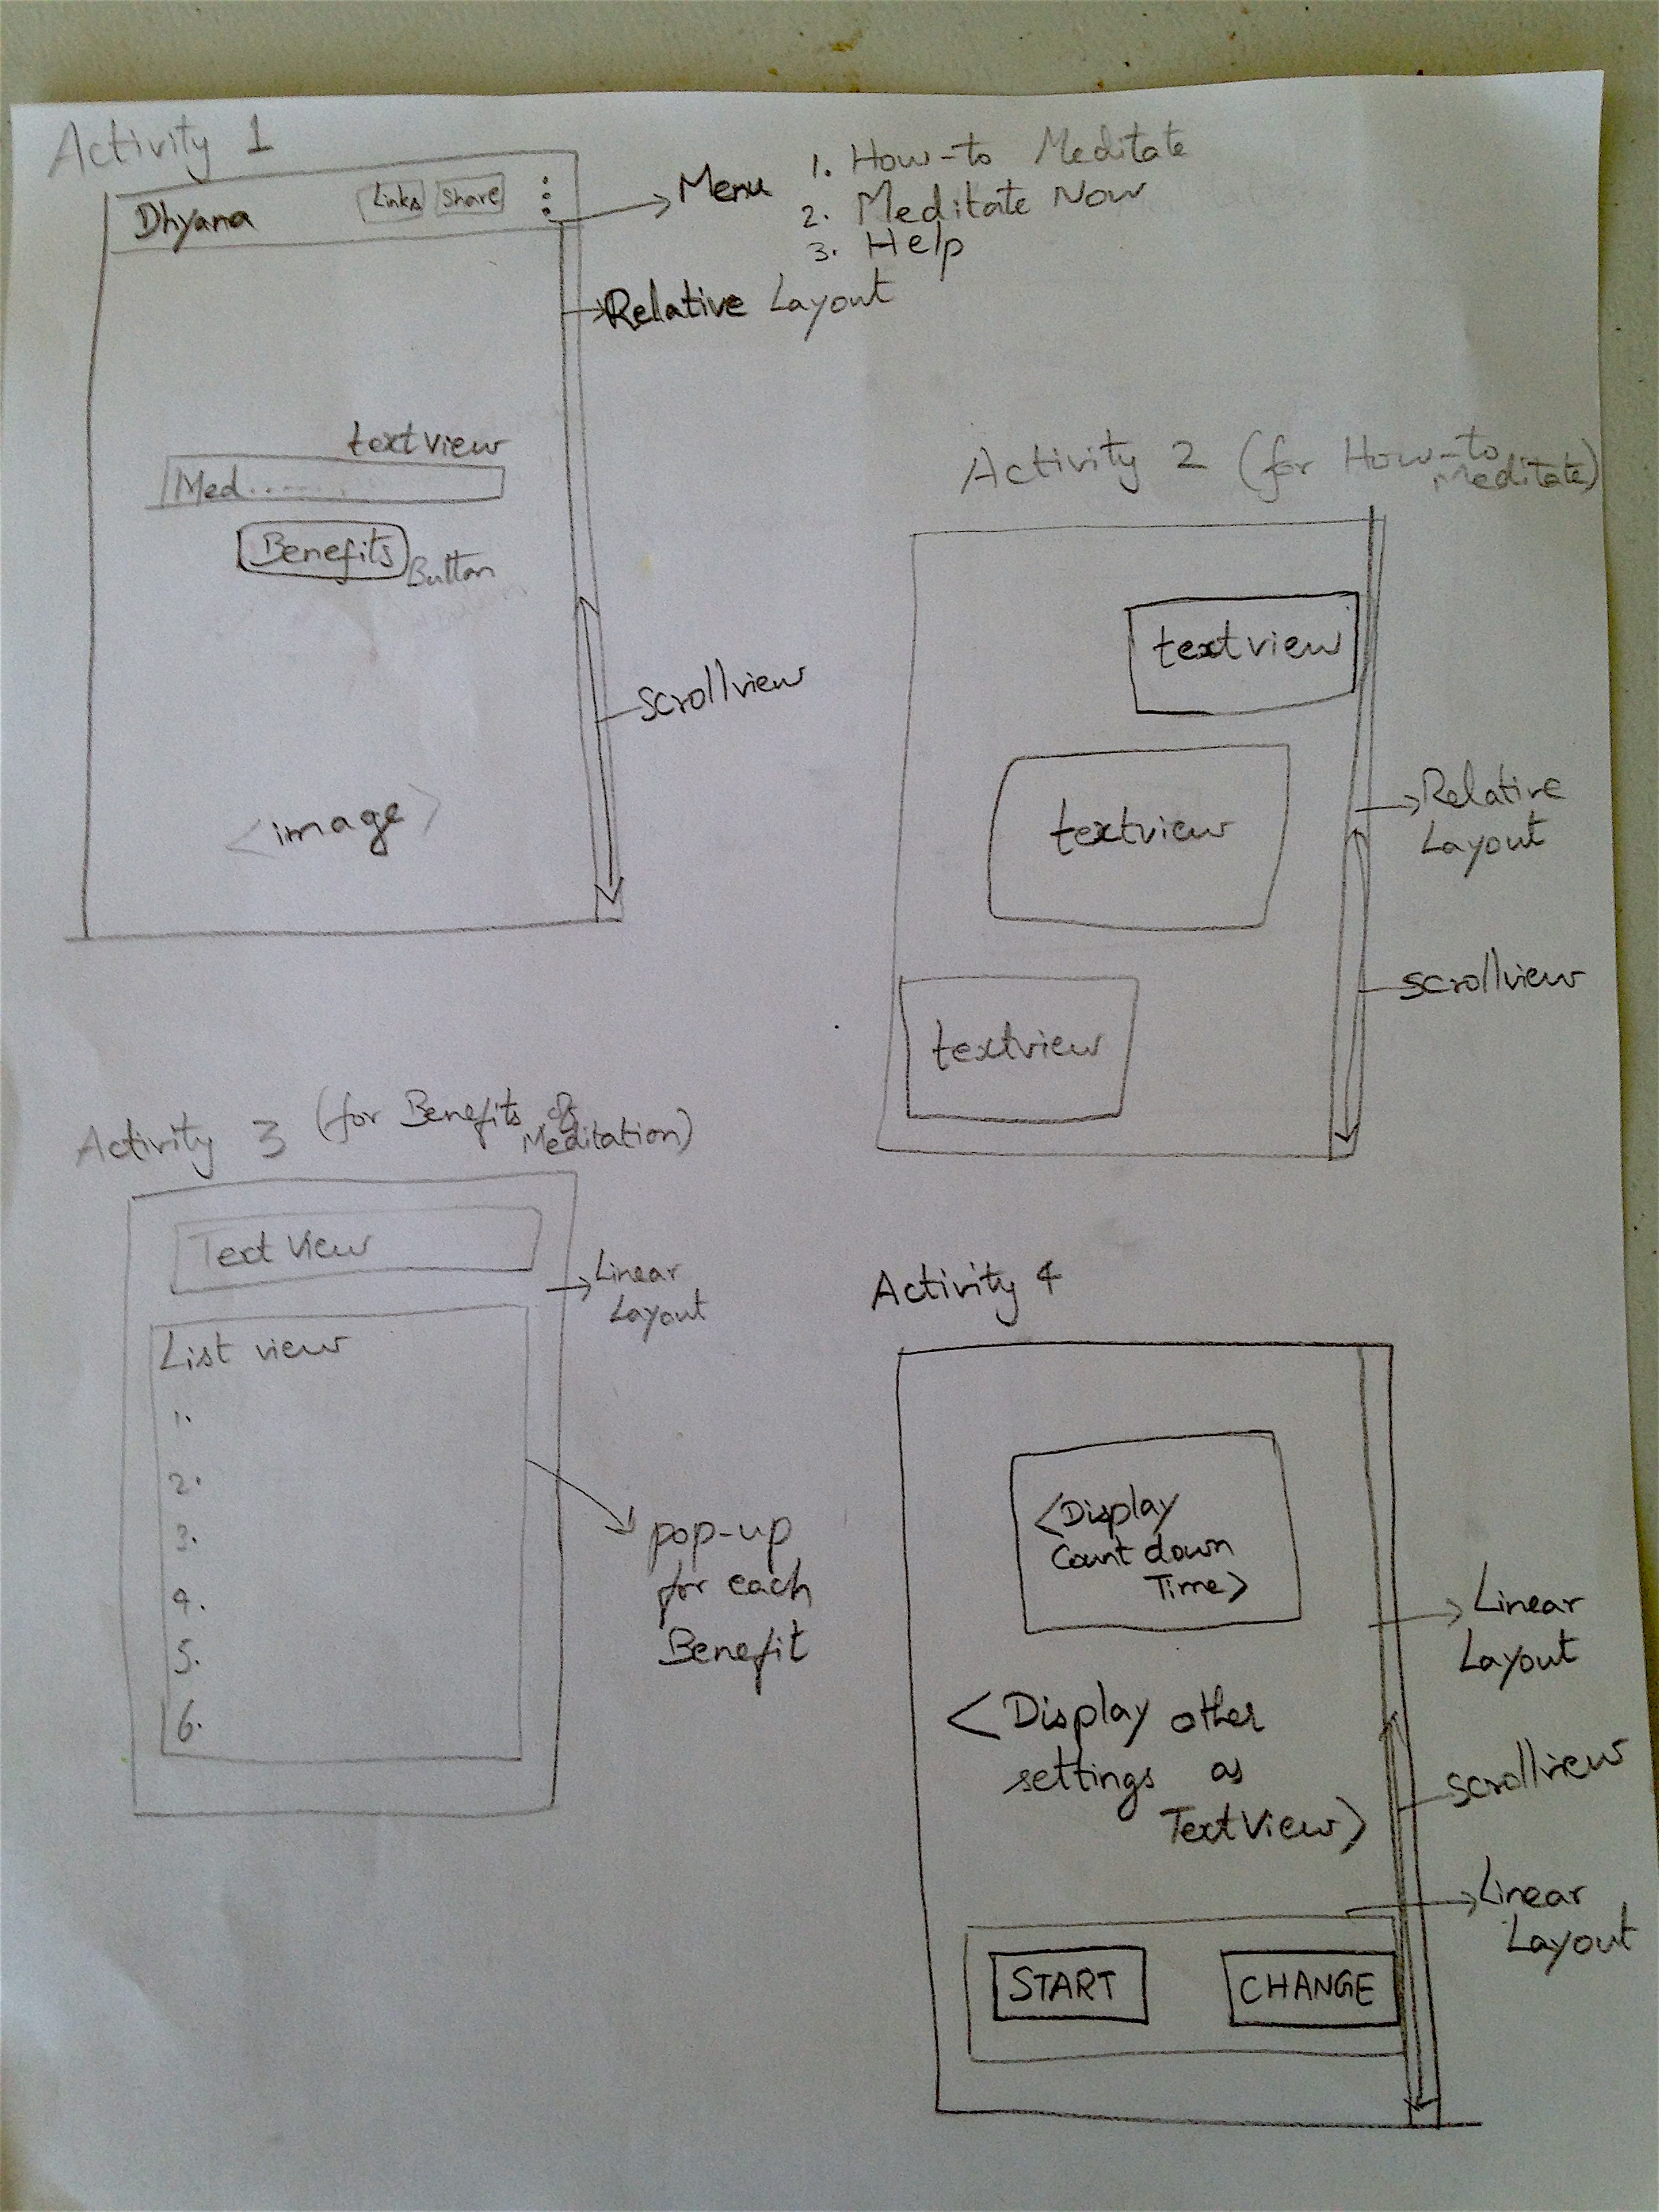 Activity 1
Dhyana
Links
Share
Menu
1. How-to Meditate
2. Meditate Now
3. Help
Relative Layout
textview
Med.......
Benefits
Button
scrollview
<image>
Activity 2 (for How-to
Meditate)
textview
textview
textview
Relative
Layout
scrollview
Activity 3 (for Benefits of
Meditation)
Text View
Linear
Layout
List view
1.
2.
3.
4.
5.
6.
pop-up
for each
Benefit
Activity 4
<Display
Count down
Time>
Linear
Layout
<Display other
settings as
TextView>
scrollview
Linear
Layout
START
CHANGE